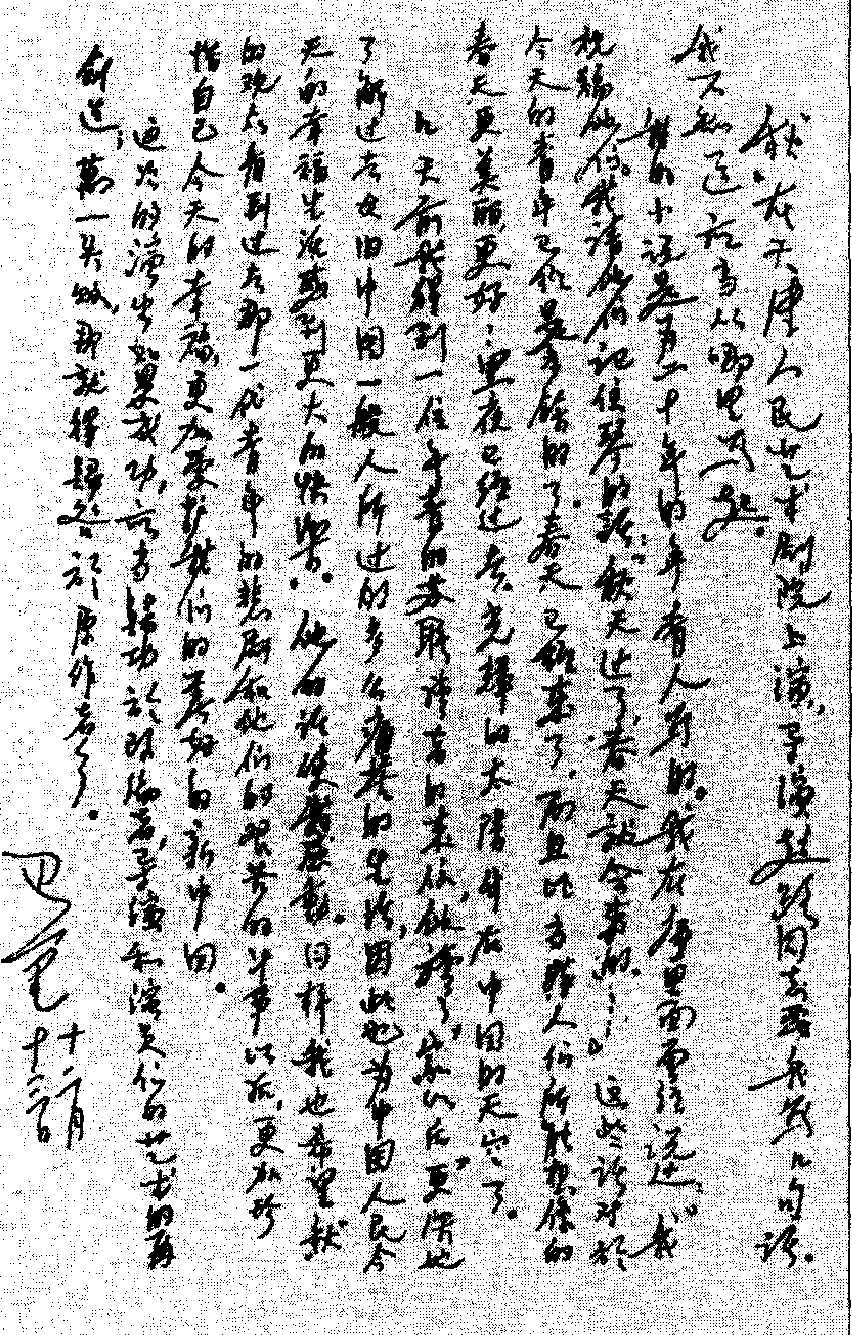 《秋》在天津人民艺术剧院上演，导演赵路同志要我写几句话。
我不知道应当从哪里写起。
我的小说是为二十年前的年青人写的。我在序里面曾经说过：“我
祝福他们。我请他们记住琴的话：‘秋天过了，春天就会来的……’”这些话对於
今天的青年已经是多馀的了。春天已经来了，而且比
春天更美丽，更好；黑夜已经过去，光辉的太阳升在中国的天空了。
几天前我得到一位年青的苏联读者的来信，他读了《家》以后更深地
了解过去旧中国一般人所过的多么痛苦的生活，因此也为中国人民今
天的幸福生活感到更大的快乐。他的话使我感动。同样我也希望《秋》
的观众看到过去那一代青年的悲剧和他们的艰苦的斗争以后，更加珍
惜自己今天的幸福，更加爱护我们的美好的新中国。
这次的演出如果成功，应当归功於改编者、导演和演员们的艺术的再
创造；万一失败，那就得归咎於原作者了。
巴金
十二月
十三日